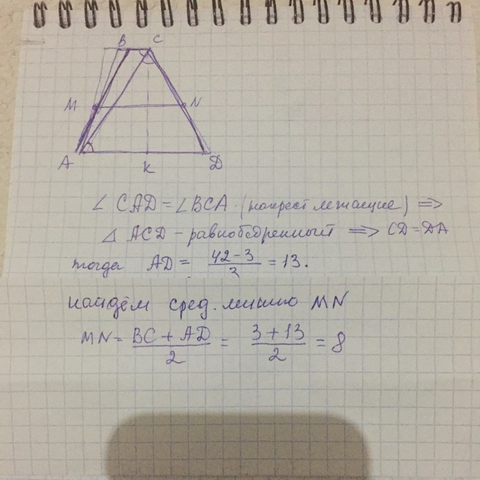 B C
M N
A K D
∠ CAD = ∠ BCA (накрест лежащие) ⟹
△ ACD - равнобедренный ⟹ CD = DA
тогда AD = (42-3)/3 = 13.
найдём сред. линию MN
MN = (BC + AD)/2 = (3 + 13)/2 = 8